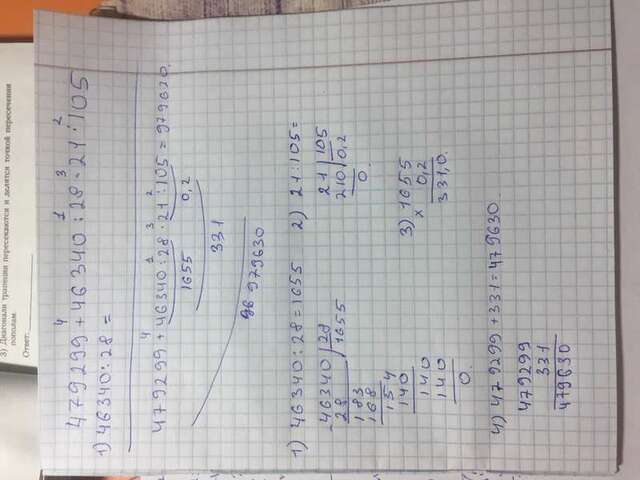 3) Диагонали трапеции пересекаются и делятся точкой пересечения
пополам.
Ответ:
4 1 3 2
479299+46340:28·21:105
1) 46340:28=
4 1 3 2
479299+46340:28·21:105=979630.
1655 0,2
331
979630
1) 46340:28=1655
46340 28
28 1655
183
168
154
140
140
140
0.
2) 21:105=
21 105
210 0,2
0.
3) 1655
× 0,2
331,0.
4) 479299+331=479630.
479299
331
479630